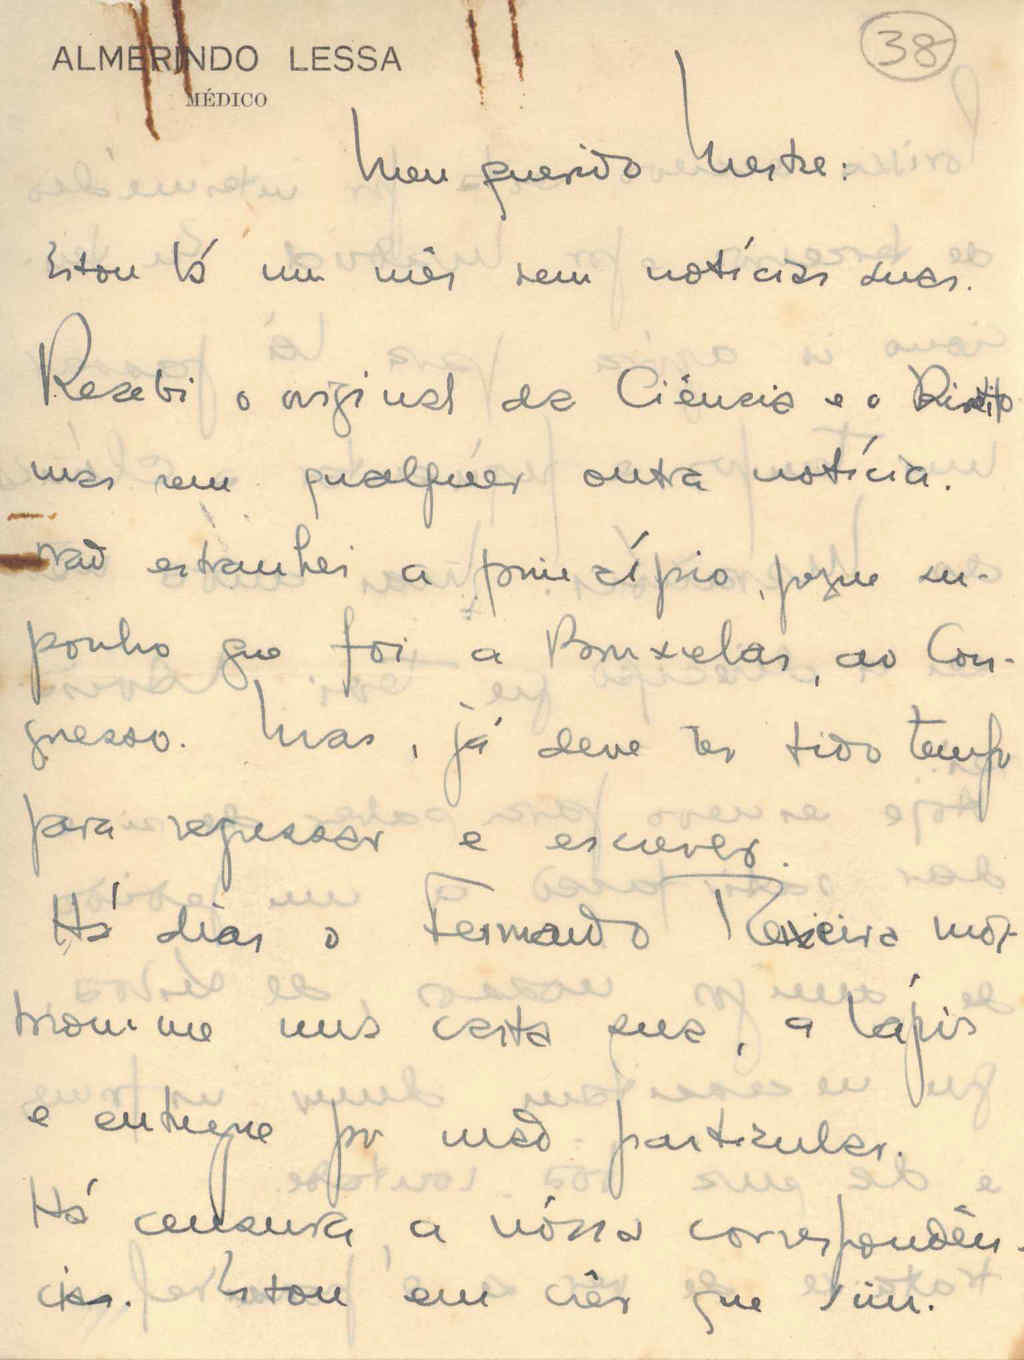 ALMERINDO LESSA
MÉDICO
38
Meu querido Mestre:
Estou há um mês sem notícias suas.
Recebi o original da Ciência e o Direito
mas sem qualquer outra notícia.
Não estranhei a princípio, porque su-
ponho que foi a Bruxelas, ao Con-
gresso. Mas, já deve ter tido tempo
para regressar e escrever.
Há dias o Fernando Teixeira mos-
trou-me uma carta sua, a lápis
e entregue por mão particular.
Há censura à nóssa correspondên-
cia. Estou em crêr que sim.